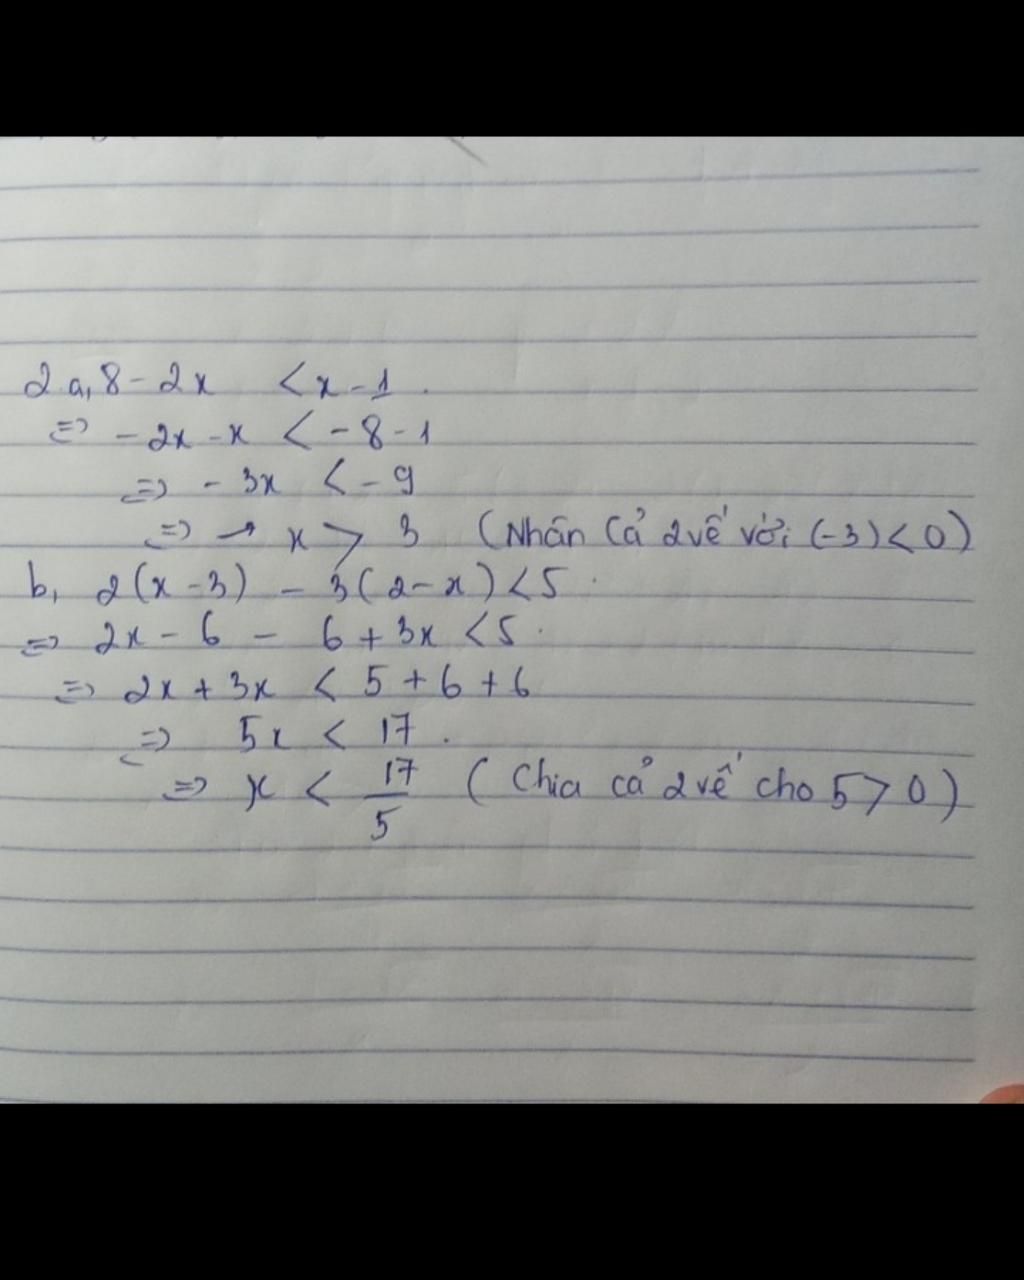 2.a, 8 - 2x < x - 1.
=> - 2x - x < - 8 - 1
=> - 3x < - 9
=> → x > 3 (Nhân cả 2 vế với (-3) < 0)
b, 2(x - 3) - 3(2 - x) < 5.
=> 2x - 6 - 6 + 3x < 5.
=> 2x + 3x < 5 + 6 + 6
=> 5x < 17.
=> x < 17/5 (Chia cả 2 vế cho 5 > 0)